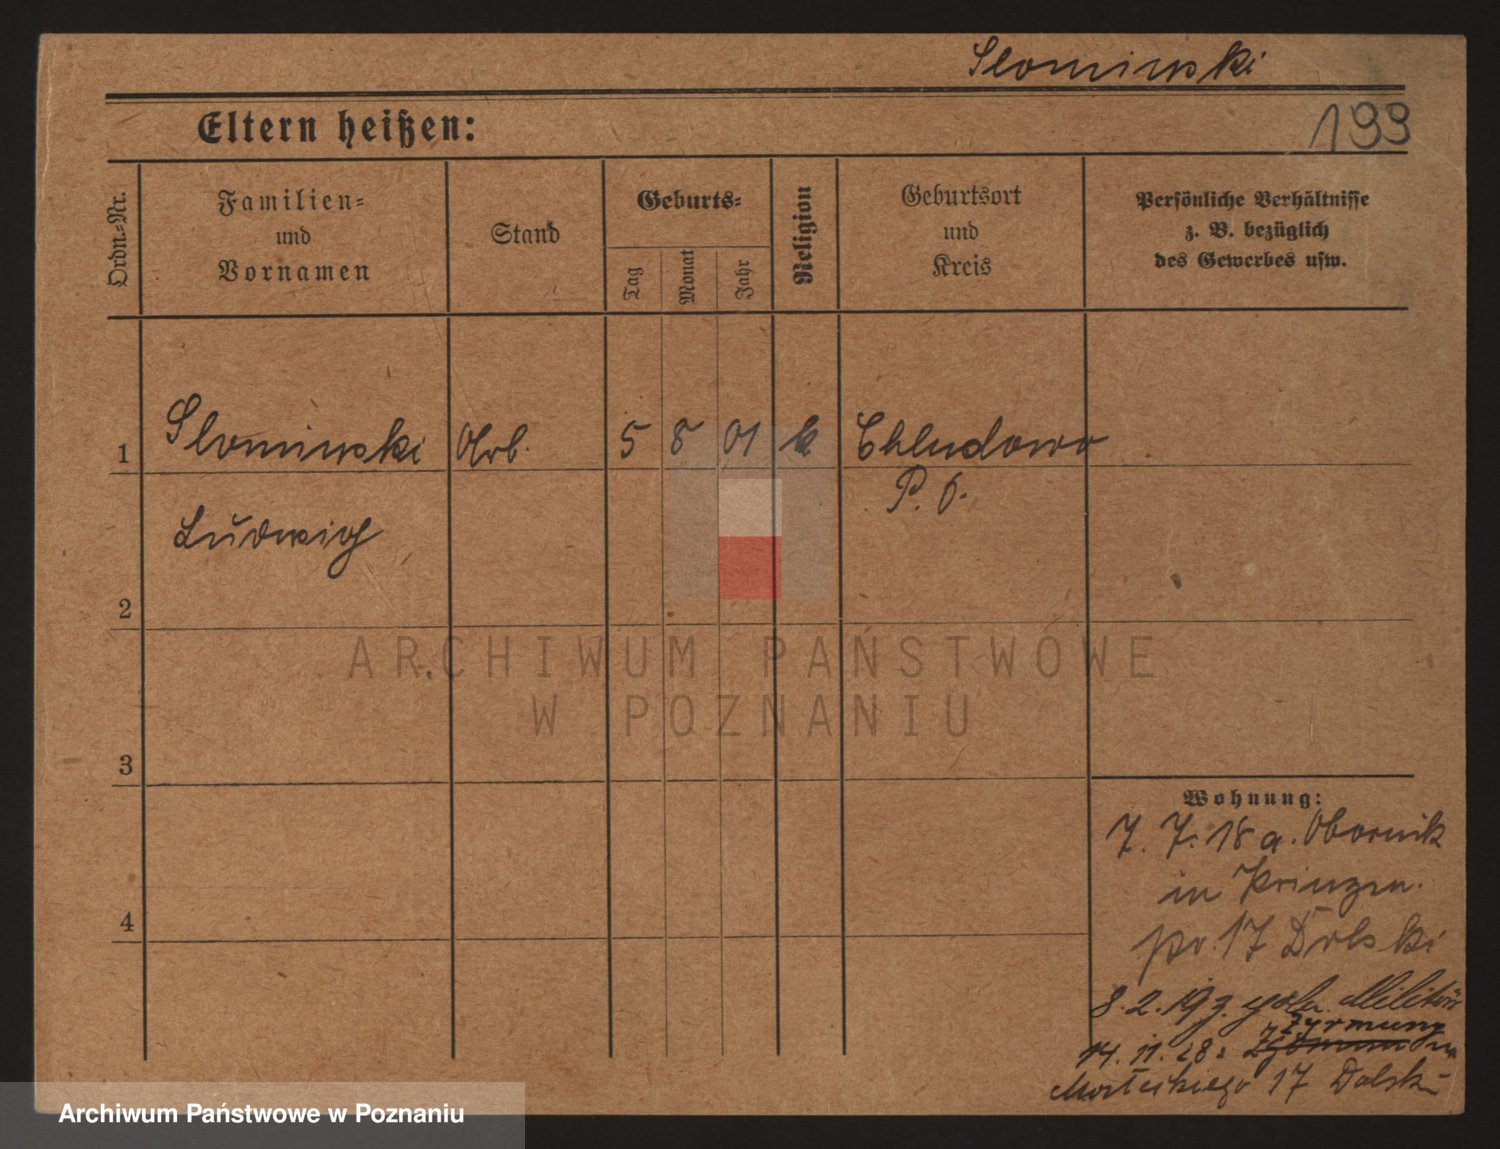 Slominski
199
Eltern heißen:
Ordn.-Nr.
Familien-
und
Vornamen
Stand
Geburts-
Tag
Monat
Jahr
Religion
Geburtsort
und
Kreis
Persönliche Verhältnisse
z. B. bezüglich
des Gewerbes usw.
1
Slominski Arb. 5 8 01 k Chludowo
P. O.
Ludwig
2
3
4
Wohnung:
7. 7. 18 a. Obornik
in Prinzen.
pr. 17 Dolski
8. 2. 19 z. poln. Militär
14. 11. 28
17 Dolski
ARCHIWUM PAŃSTWOWE
W POZNANIU
Archiwum Państwowe w Poznaniu